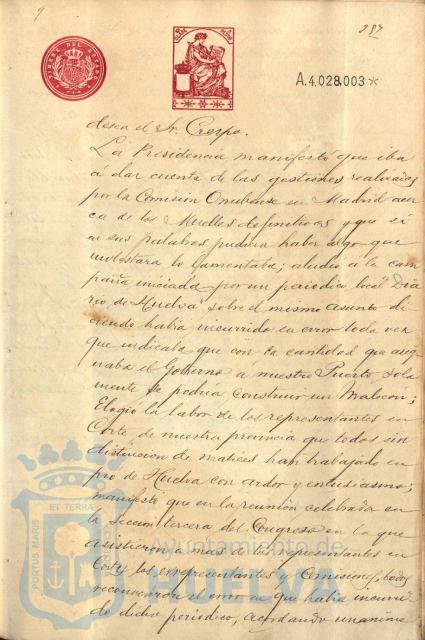 9
257
TIMBRE DEL ESTADO
A.4.028.003*
desea el Sr. Crespo.
La Presidencia manifestó que iba
á dar cuenta de las gestiones realizadas
por la Comision Onubense en Madrid acer
ca de los Muelles definitivos y que si
en sus palabras pudiera haber algo que
molestara lo lamentaba; aludió á la cam
paña iniciada por un periodico local "Dia
rio de Huelva" sobre el mismo asunto di
ciendo habia incurrido en error toda vez
que indicaba que con la cantidad que asig
naba el Gobierno a nuestro Puerto sola
mente se podria construir un Malecon;
Elogió la labor de los representantes en
Cortes de nuestra provincia que todos sin
distincion de matices han trabajado en
pro de Huelva con ardor y entusiasmo;
manifestó que en la reunion celebrada en
la Seccion tercera del Congreso en la que
asistieron a mas de los representantes en
Cortes los representantes y Comisiones, todos
reconocieron el error en que habia incurri
do dicho periodico, acordando unanime
PORTUS MARIS ET TERRAE
Ayuntamiento de
HUELVA